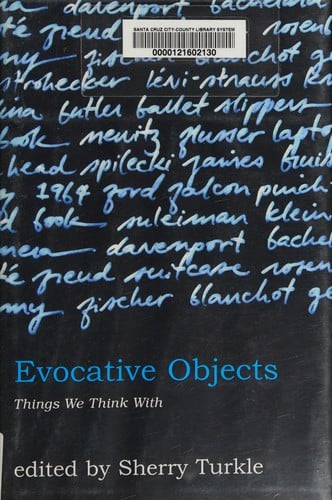 SANTA CRUZ CITY-COUNTY LIBRARY SYSTEM
0000121602130
davenport
té freud suitcase rosen
my fischer blanchot g
strohecker lévi-strauss k
butler ballet slippers
book newitz glusser lapto
head spilecki james
1964 ford falcon
d book suleiman klein
mera davenport bache
té freud suitcase rosen
my fischer blanchot ge
Evocative Objects
Things We Think With
edited by Sherry Turkle